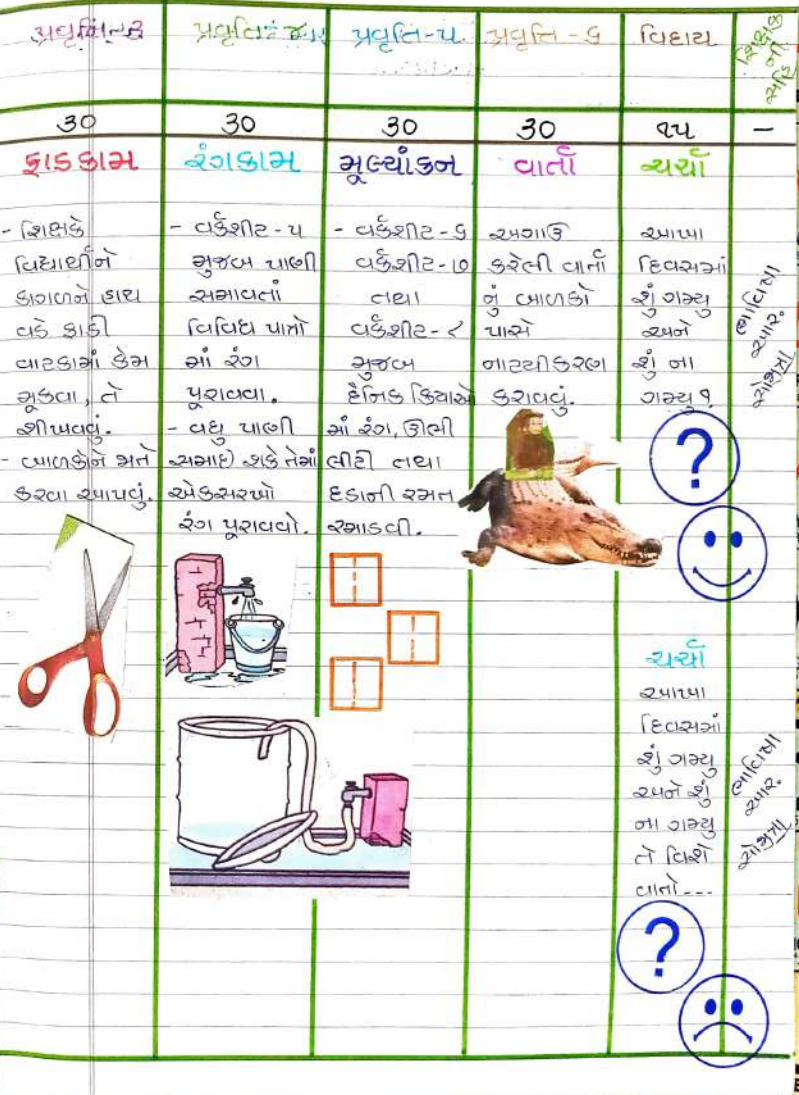 પ્રવૃત્તિ-૫
પ્રવૃત્તિ - ૬
વિદાય
શિક્ષક
ની
સહિ
૩૦
૩૦
૩૦
૩૦
૧૫
-
ફાડકામ
- શિક્ષકે
વિદ્યાર્થીને
કાગળને હાથ
વડે ફાડી
વાટકામાં કેમ
મૂકવા, તે
શીખવવું.
- બાળકોને મતે
કરવા આપવું.
રંગકામ
- વર્કશીટ-૫
મુજબ પાણી
સમાવતાં
વિવિધ પાત્રો
માં રંગ
પૂરાવવા.
- વધુ પાણી
સમાઇ શકે તેમાં
એકસરખો
રંગ પૂરાવવો.
મૂલ્યાંકન
- વર્કશીટ-૬
વર્કશીટ-૭
તથા
વર્કશીટ-૮
મુજબ
દૈનિક ક્રિયાઓ
માં રંગ, ઊભી
લીટી તથા
દડાની રમત
રમાડવી.
વાર્તા
અગાઉ
કરેલી વાર્તા
નું બાળકો
પાસે
નાટ્યીકરણ
કરાવવું.
ચર્ચા
આખા
દિવસમાં
શું ગમ્યુ
અને
શું ના
ગમ્યુ?
?
ચર્ચા
આખા
દિવસમાં
શું ગમ્યુ
અને શું
ના ગમ્યુ
તે વિશે
વાતો---
?
ભાવિયા
આર.
ભાવિયા
આર.